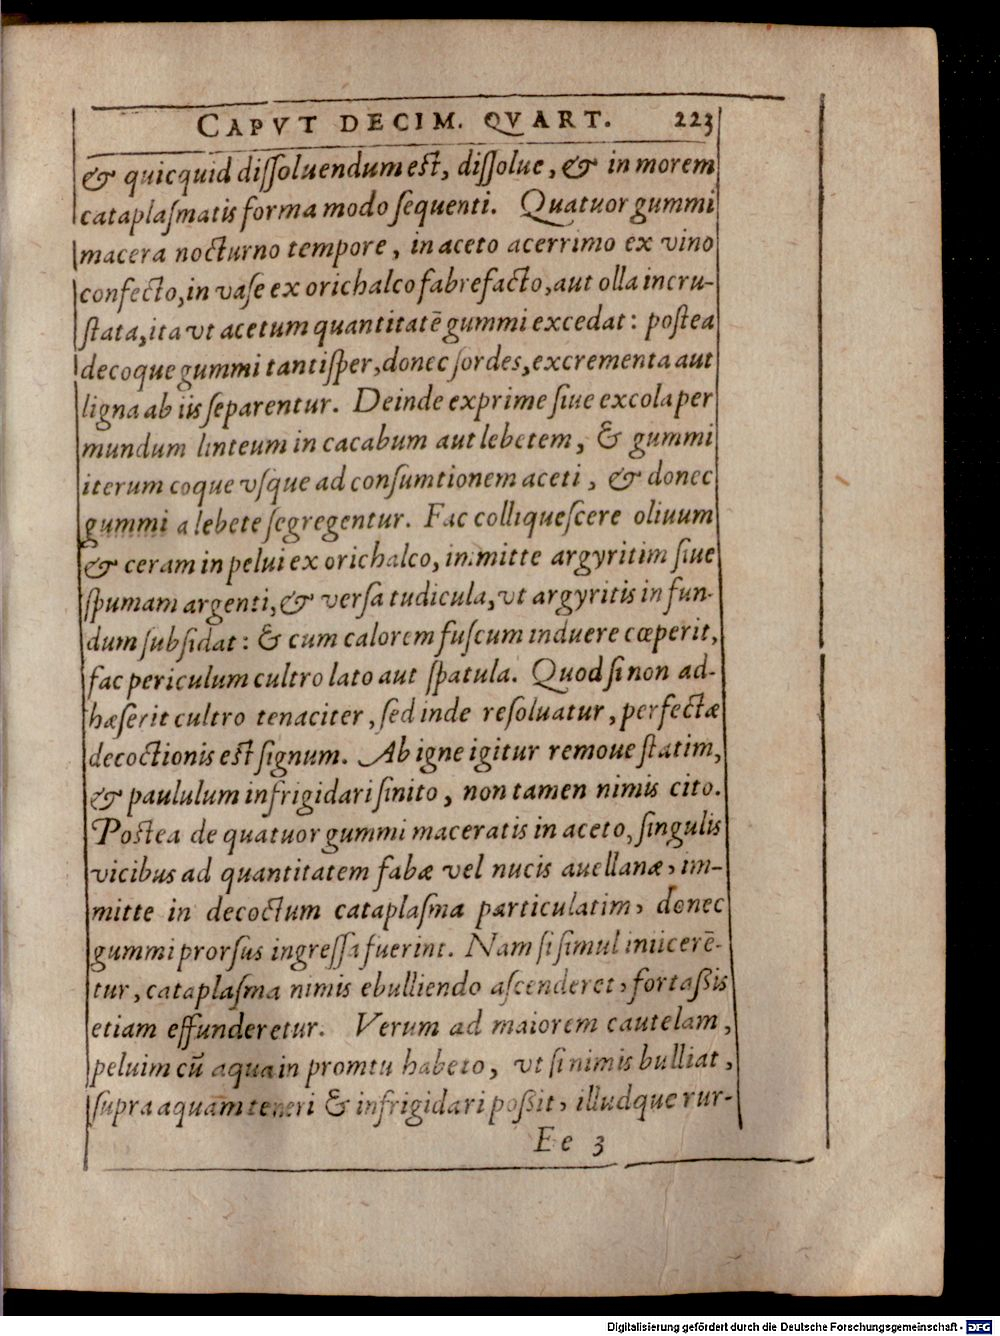 CAPVT DECIM. QVART. 223
& quicquid diſſoluendum eſt, diſſolue, & in morem
cataplaſmatis forma modo ſequenti. Quatuor gummi
macera nocturno tempore, in aceto acerrimo ex vino
confecto, in vaſe ex orichalco fabrefacto, aut olla incru-
ſtata, ita vt acetum quantitatē gummi excedat: poſtea
decoque gummi tantiſper, donec ſordes, excrementa aut
ligna ab iis ſeparentur. Deinde exprime ſiue excola per
mundum linteum in cacabum aut lebetem, & gummi
iterum coque vſque ad conſumtionem aceti, & donec
gummi a lebete ſegregentur. Fac colliqueſcere oliuum
& ceram in pelui ex orichalco, immitte argyritim ſiue
ſpumam argenti, & verſa tudicula, vt argyritis in fun-
dum ſubſidat: & cum calorem fuſcum induere cœperit,
fac periculum cultro lato aut ſpatula. Quod ſi non ad-
hæſerit cultro tenaciter, ſed inde reſoluatur, perfectæ
decoctionis eſt ſignum. Ab igne igitur remoue ſtatim,
& paululum infrigidari ſinito, non tamen nimis cito.
Poſtea de quatuor gummi maceratis in aceto, ſingulis
vicibus ad quantitatem fabæ vel nucis auellanæ, im-
mitte in decoctum cataplaſma particulatim, donec
gummi prorſus ingreſſa fuerint. Nam ſi ſimul iniicerē-
tur, cataplaſma nimis ebulliendo aſcenderet, fortaßis
etiam effunderetur. Verum ad maiorem cautelam,
peluim cū aqua in promtu habeto, vt ſi nimis bulliat,
ſupra aquam teneri & infrigidari poßit, illudque rur-
Ee 3
Digitalisierung gefördert durch die Deutsche Forschungsgemeinschaft - DFG